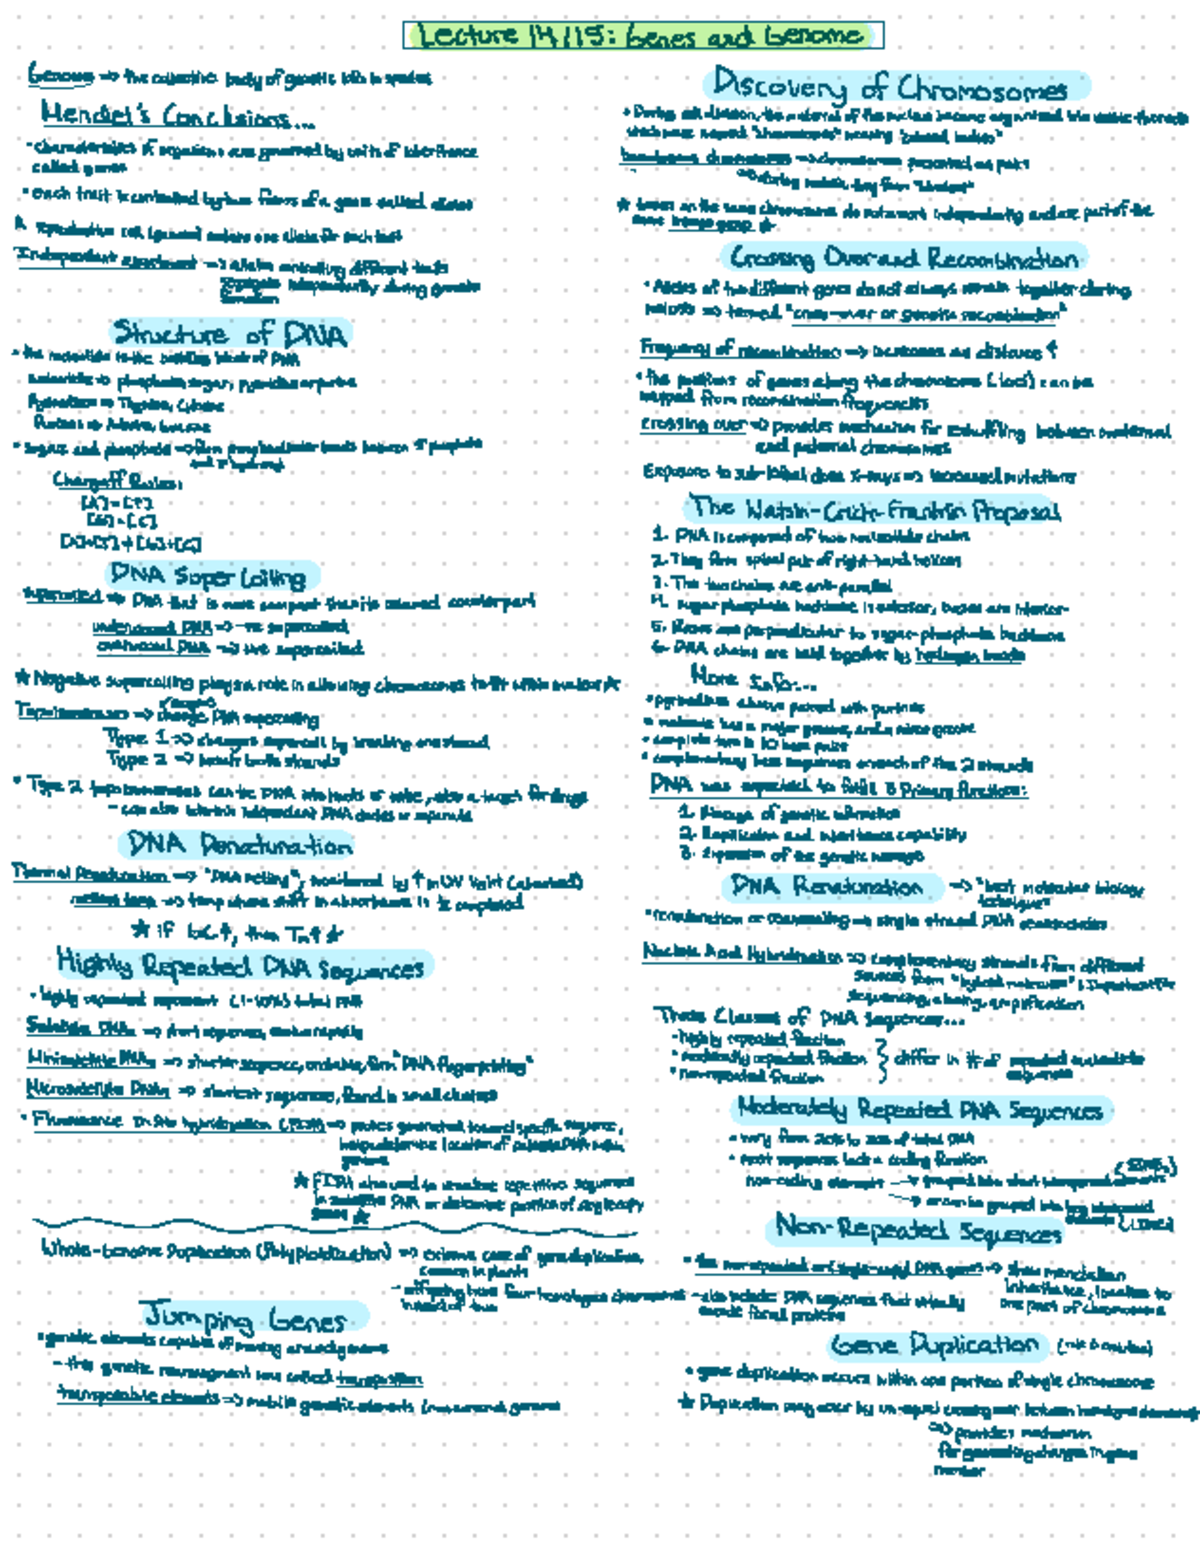 Lecture 14/15: Genes and Genome
Genome => the collective body of genetic info in species
Mendel's Conclusions...
• characteristics of organisms are governed by units of inheritance
called genes
• each trait is controlled by two forms of a gene called alleles
A reproductive cell (gamete) contains one allele for each trait
Independent assortment => alleles controlling different traits
segregate independently during gamete
formation
Structure of DNA
• the nucleotide is the building block of DNA
nucleotide => phosphate, sugar, pyrimidine or purine
Pyrimidines => Thymine, Cytosine
Purines => Adenine, Guanine
• Sugars and phosphates => form phosphodiester bonds between 5' phosphate
and 3' hydroxyl
Chargaff Rules:
[A] = [T]
[G] = [C]
[A]+[T] ≠ [G]+[C]
DNA Supercoiling
supercoiled => DNA that is more compact than its relaxed counterpart
underwound DNA => -ve supercoiled
overwound DNA => +ve supercoiled
★ Negative supercoiling plays a role in allowing chromosomes to fit within nucleus ★
Topoisomerases => change DNA supercoiling
Type 1 => changes supercoil by breaking one strand
Type 2 => break both strands
• Type 2 topoisomerases can tie DNA into knots or untie, also a target for drugs
- can also interlink independent DNA circles or separate
DNA Denaturation
Thermal Denaturation => "DNA melting", monitored by ↑ in UV light (absorbed)
melting temp => temp where shift in absorbance is ½ completed
★ if GC ↑, then Tm ↑ ★
Highly Repeated DNA Sequences
• highly repeated represent (1-10%) total DNA
Satellite DNAs => short sequences, evolve rapidly
Minisatellite DNAs => shorter sequence, unstable, form "DNA fingerprinting"
Microsatellite DNAs => shortest sequences, found in small clusters
• Fluorescence in situ hybridization (FISH) => probes generated toward specific sequence,
helps determine location of satellite DNA within
genome
★ FISH also used to visualize repetitive sequences
in satellite DNA or determine position of single copy
genes ★
Whole-Genome Duplication (Polyploidization) => extreme case of gene duplication,
common in plants
- offspring have four homologous chromosomes
instead of two
Jumping Genes
• genetic elements capable of moving around genome
- this genetic rearrangement was called transposition
transposable elements => mobile genetic elements (
Discovery of Chromosomes
• During cell division, the material of the nucleus became organized into visible threads
which were named "chromosomes" meaning "colored bodies"
homologous chromosomes => chromosomes presented as pairs
=> during meiosis, they form "bivalent"
★ Genes on the same chromosome do not assort independently and are part of the
same linkage group ★
Crossing Over and Recombination
• Alleles of two different genes do not always remain together during
meiosis => termed "cross-over or genetic recombination"
Frequency of recombination => increases as distance ↑
• The positions of genes along the chromosome (loci) can be
mapped from recombination frequencies
crossing over => provides mechanism for reshuffling between maternal
and paternal chromosomes
Exposure to sub-lethal dose X-rays => increased mutations
The Watson-Crick-Franklin Proposal
1. DNA is composed of two nucleotide chains
2. They form spiral pair of right-hand helices
3. The two chains are anti-parallel
4. sugar phosphate backbone is exterior, bases are interior
5. Bases are perpendicular to sugar-phosphate backbone
6. DNA chains are held together by hydrogen bonds
More Info...
• pyrimidines always paired with purines
• molecule has a major groove, and a minor groove
• complete turn is 10 base pairs
• complementary base sequences on each of the 2 strands
DNA was expected to fulfill 3 Primary functions:
1. Storage of genetic information
2. Replication and inheritance capability
3. Expression of the genetic message
DNA Renaturation => "best molecular biology
technique"
• renaturation or reannealing => single strand DNA reassociates
Nucleic Acid Hybridization => complementary strands from different
sources form "hybrid molecules" & important for
sequencing, cloning, amplification
Three Classes of DNA Sequences...
• highly repeated fraction
• moderately repeated fraction } differ in # of repeated nucleotide
sequences
• non-repeated fraction
Moderately Repeated DNA Sequences
• vary from 20% to 80% of total DNA
• most sequences lack a coding function
non-coding elements → grouped into short interspersed elements (SINEs)
→ or can be grouped into long interspersed
elements (LINEs)
Non-Repeated Sequences
• the non-repeated or single-copy DNA genes => show mendelian
inheritance, localize to
one part of chromosome
- also include DNA sequences that virtually
encode for all proteins
Gene Duplication
• gene duplication occurs within one portion of single chromosome
★ Duplication may occur by unequal crossing over between homologous chromosomes
=> provides mechanism
for generating changes in gene
number